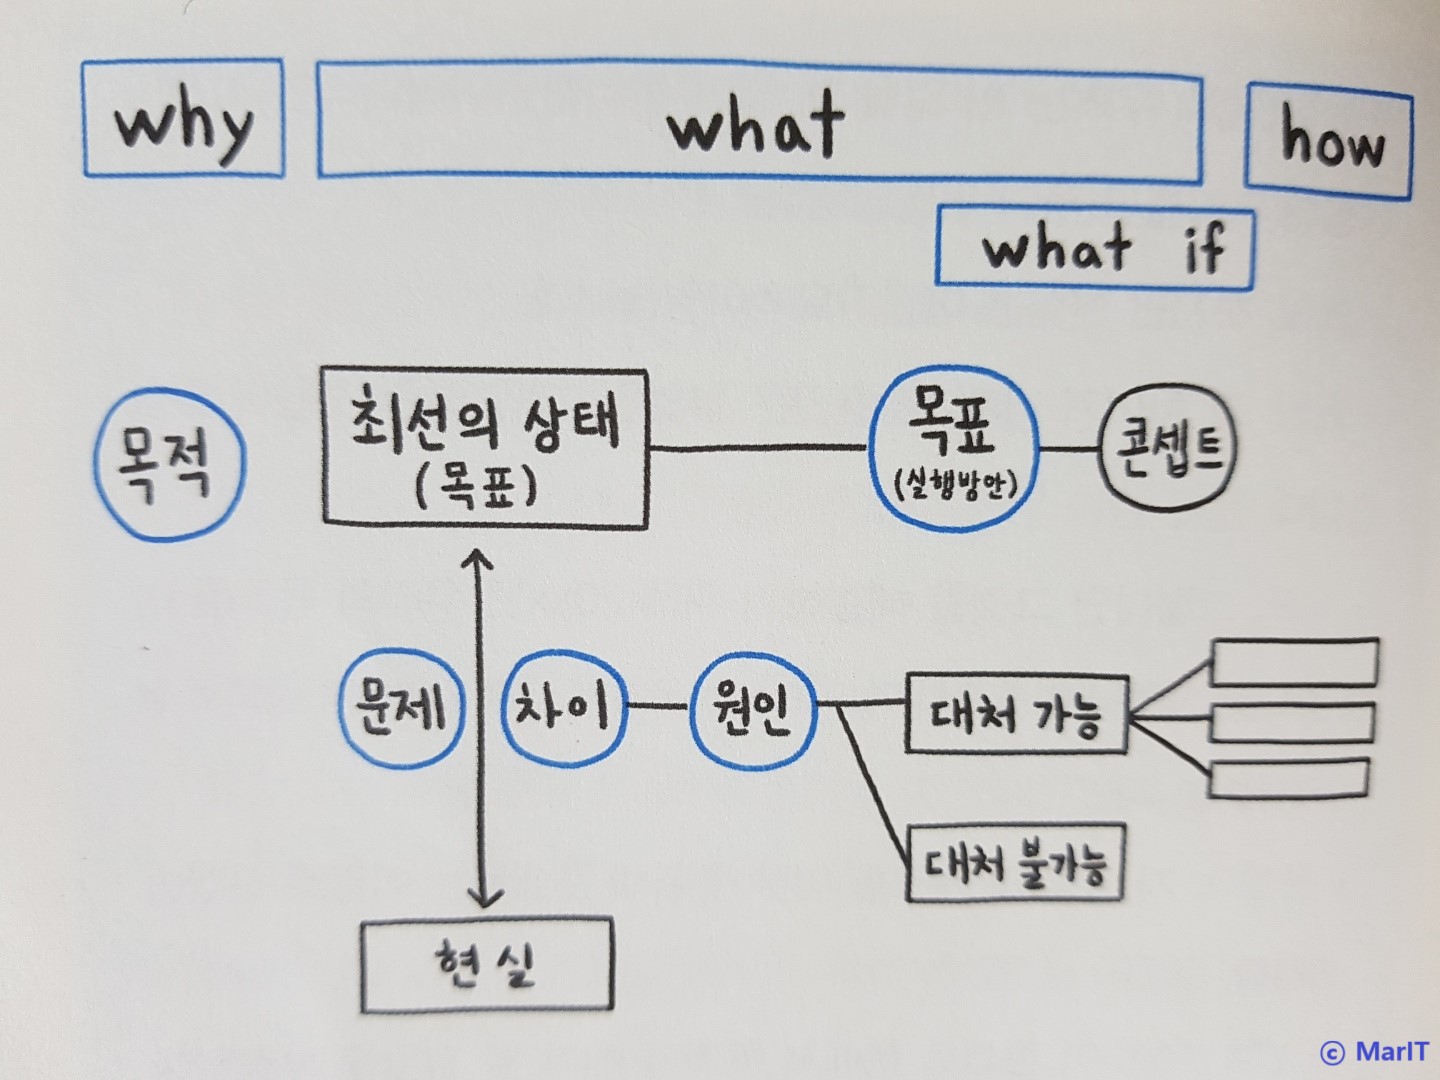 why
what
how
what if
목적
최선의 상태
(목표)
목표
(실행방안)
콘셉트
문제
차이
원인
대처 가능
대처 불가능
현실
ⓒ MarIT